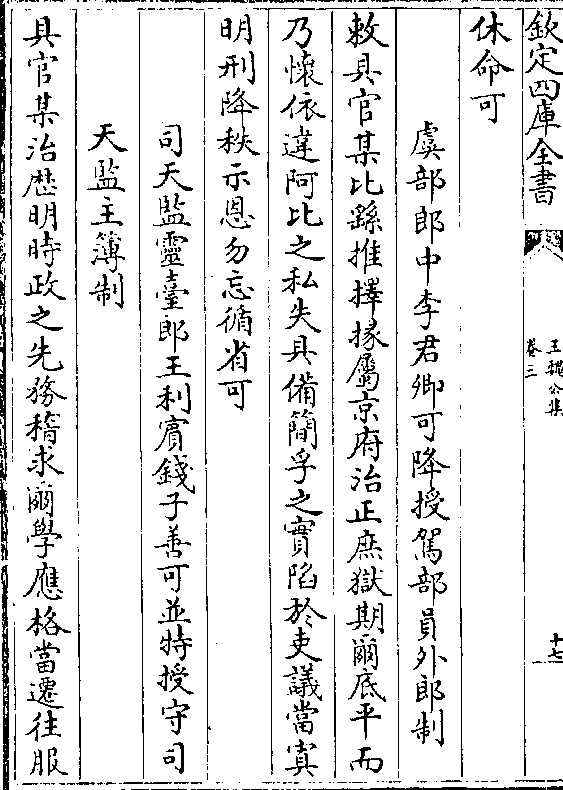 欽定四庫全書
王魏公集
卷三
十七
休命可
虞部郎中李君卿可降授駕部員外郎制
敕具官某比繇推擇掾屬京府治正庶獄期爾底平而
乃懷依違阿比之私失具備簡孚之實陷於吏議當寘
明刑降秩示恩勿忘循省可
司天監靈臺郎王利賓錢子善可並特授守司
天監主簿制
具官某治厯明時政之先務稽求爾學應格當遷往服